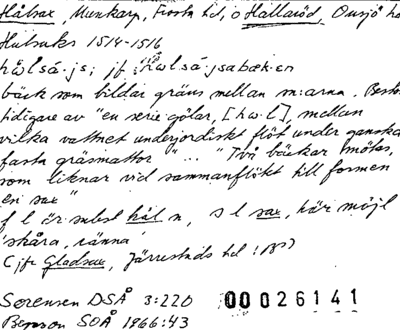 Hålsax, Munkarp, Frosta hd, o Hallaröd, Onsjö hd
Hulsaks 1514-1516
hω̊lsá·js; jf hω̊lsá·jsabæk:en
bäck som bildar gräns mellan m:arna. Bestod
tidigare av "en serie gölar, [hω·l], mellan
vilka vattnet underjordiskt flöt under ganska
fasta gräsmattor "... "Två bäckar mötas,
som liknar vid sammanflödet till formen
en sax"
f l är subst hål n, s l sax, här möjl
'skåra, ränna'
Cfr Gladsax, Järrestads hd
Sørensen DSÅ 3:220 00026141
Benson SOÅ 1966:43